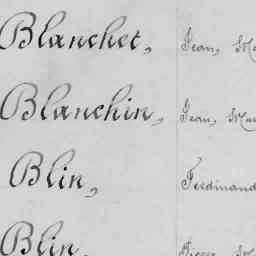 Blanchet, Jean,
Blanchin, Jean,
Blin, Ferdinand
Blin, Pierre